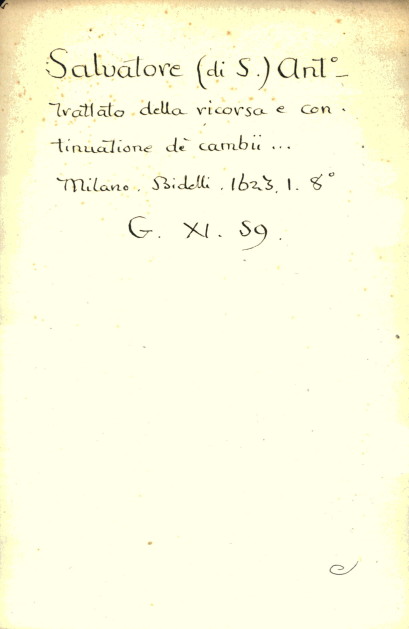 Salvatore (di S.) Ant°_
Trattato della ricorsa e con.
tinuatione dè cambii ...
Milano. Bidelli. 1623. 1. 8°
G. XI. 59.